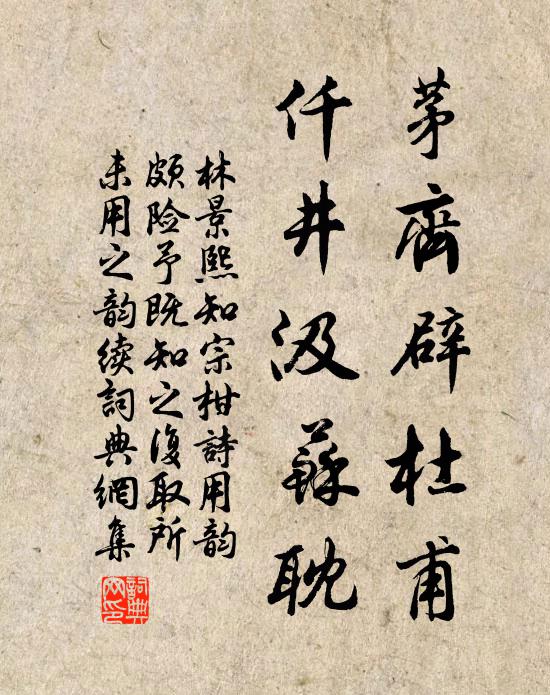 茅齊辟杜甫
仟井汲蘇耽
林景熙知宗柑詩用韵
頗险予既知之復取所
未用之韵续詞典網集
詞典网印